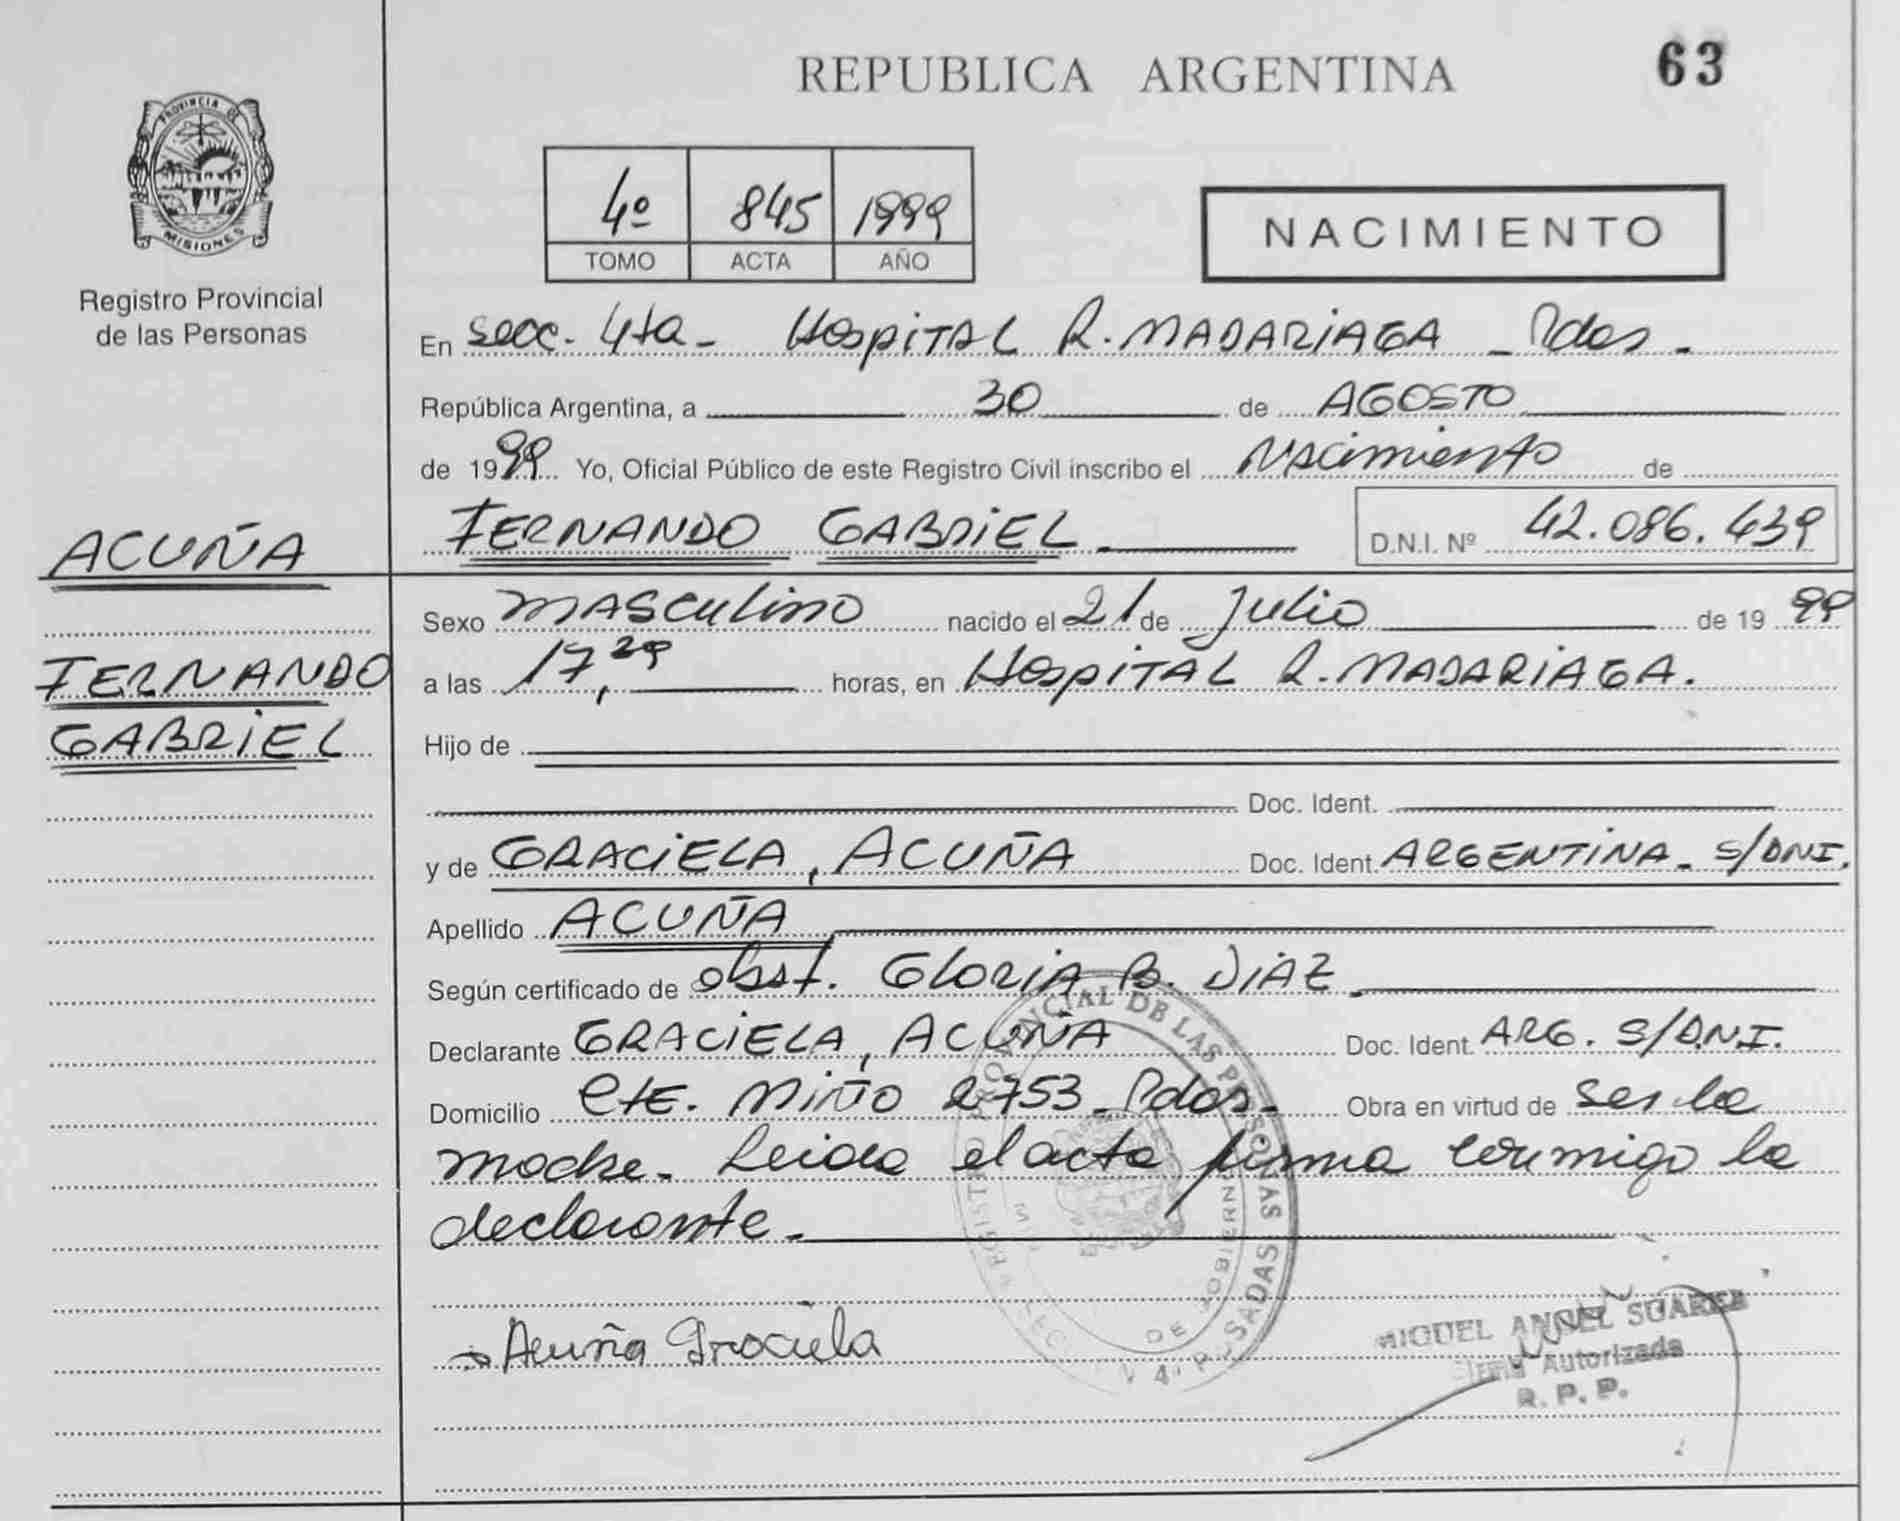 REPUBLICA ARGENTINA
63
PROVINCIA DE
MISIONES
Registro Provincial
de las Personas
4º 845 1999
TOMO ACTA AÑO
NACIMIENTO
En secc. 4ta - Hospital R. MADARIAGA - Pdas -
República Argentina, a 30 de AGOSTO
de 1999 Yo, Oficial Público de este Registro Civil inscribo el Nacimiento de
FERNANDO GABRIEL D.N.I. Nº 42.086.439
ACUÑA
FERNANDO
GABRIEL
Sexo MASCULINO nacido el 21 de Julio de 1999
a las 17,29 horas, en Hospital R. MADARIAGA.
Hijo de
Doc. Ident.
y de GRACIELA, ACUÑA Doc. Ident. ARGENTINA - S/DNI.
Apellido ACUÑA
Según certificado de obst. Gloria B. DIAZ
Declarante GRACIELA, ACUÑA Doc. Ident. ARG. S/D.N.I.
Domicilio Cte. Miño 2753 - Pdas - Obra en virtud de ser la
madre - Leida el acta firma conmigo la
declarante -
Acuña Graciela
REGISTRO PROVINCIAL DE LAS PERSONAS
POSADAS
DE GOBIERNO
MIGUEL ANGEL SUAREZ
Firma Autorizada
R. P. P.